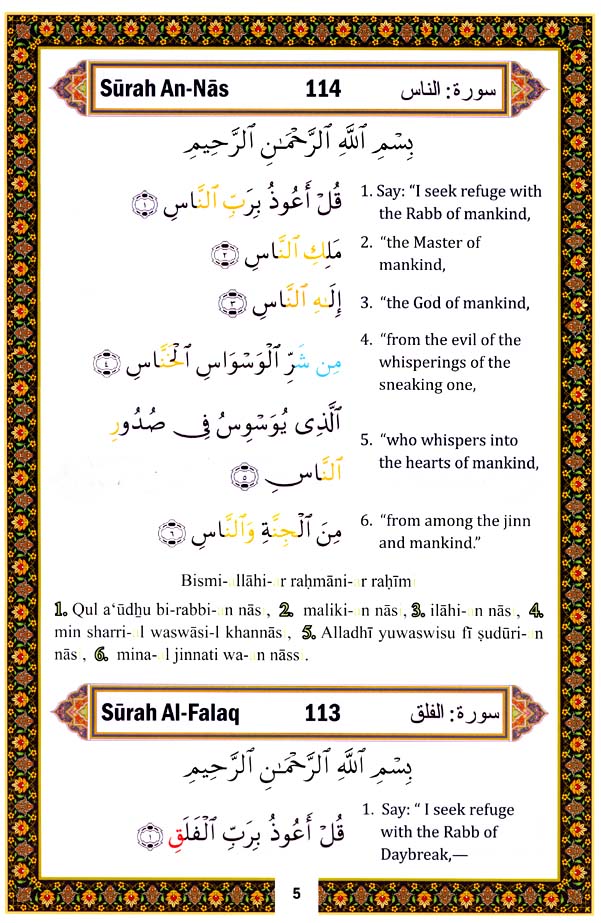 Sūrah An-Nās 114 سورة: الناس
بِسْمِ ٱللَّهِ ٱلرَّحْمَٰنِ ٱلرَّحِيمِ
قُلْ أَعُوذُ بِرَبِّ ٱلنَّاسِ ١
1. Say: “I seek refuge with
the Rabb of mankind,
مَلِكِ ٱلنَّاسِ ٢
2. “the Master of
mankind,
إِلَٰهِ ٱلنَّاسِ ٣
3. “the God of mankind,
مِن شَرِّ ٱلْوَسْوَاسِ ٱلْخَنَّاسِ ٤
4. “from the evil of the
whisperings of the
sneaking one,
ٱلَّذِى يُوَسْوِسُ فِى صُدُورِ
ٱلنَّاسِ ٥
5. “who whispers into
the hearts of mankind,
مِنَ ٱلْجِنَّةِ وَٱلنَّاسِ ٦
6. “from among the jinn
and mankind.”
Bismi-allāhi-ar raḥmāni-ar raḥīmi
1. Qul a‘ūdẖu bi-rabbi-an nāsi, 2. maliki-an nāsi, 3. ilāhi-an nāsi, 4.
min sharri-al waswāsi-l khannāsi, 5. Alladhī yuwaswisu fī ṣudūri-an
nāsi, 6. mina-al jinnati wa-an nāssi.
Sūrah Al-Falaq 113 سورة: الفلق
بِسْمِ ٱللَّهِ ٱلرَّحْمَٰنِ ٱلرَّحِيمِ
قُلْ أَعُوذُ بِرَبِّ ٱلْفَلَقِ ١
1. Say: “ I seek refuge
with the Rabb of
Daybreak,—
5